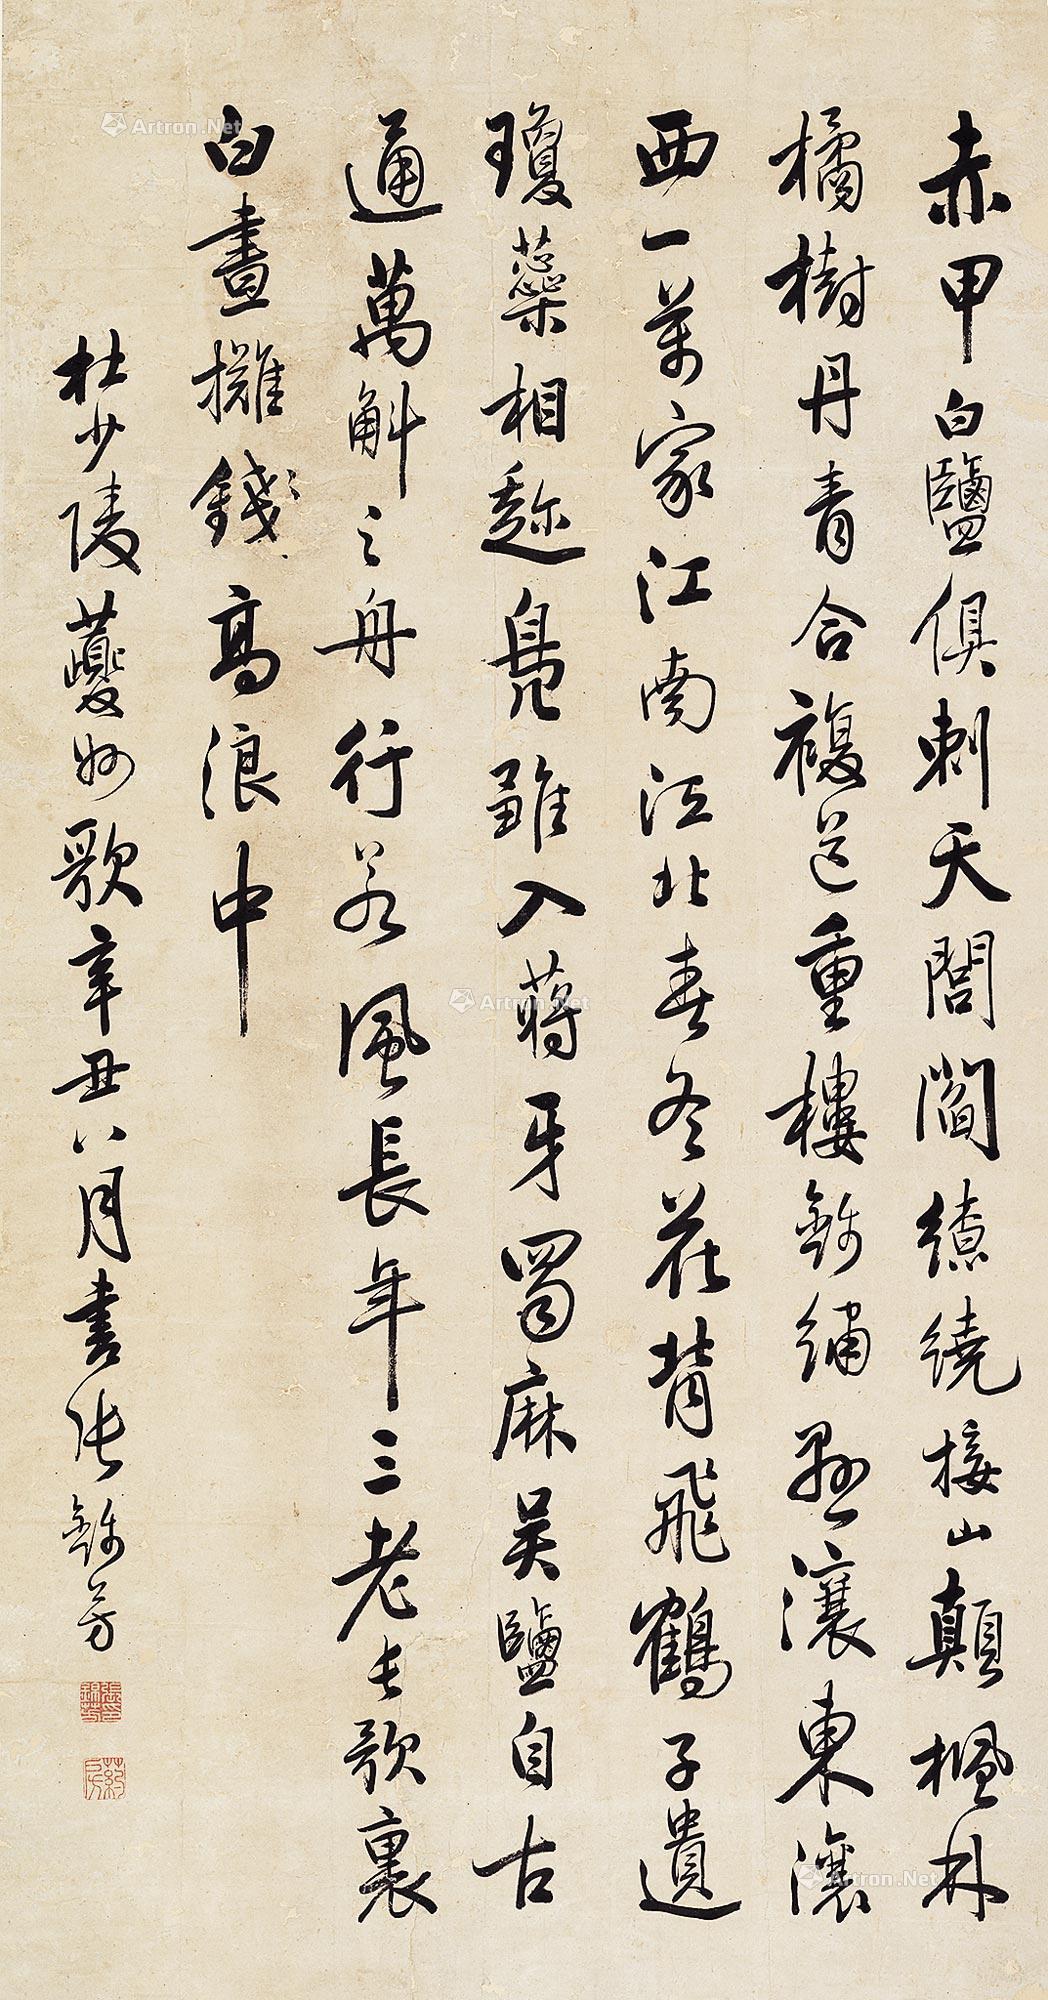 赤甲白鹽俱刺天閭閻繚繞接山顛楓林
橘樹丹青合複道重樓錦繡懸瀼東瀼
西一萬家江南江北春冬花背飛鶴子遺
瓊蘂相趁鳧雛入蔣牙蜀麻吳鹽自古
通萬斛之舟行若風長年三老長歌裏
白晝攤錢高浪中
杜少陵夔州歌辛丑八月書張錦芳
張錦芳印
藥房
Artron.Net
Artron.Net
Artron.Net